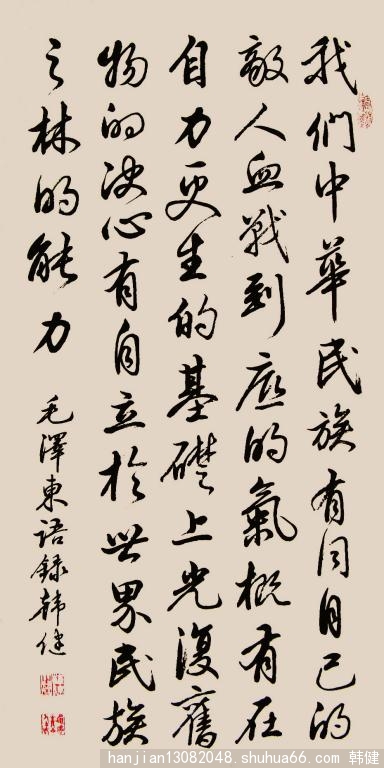 我們中華民族有同自己的
敵人血戰到底的氣概有在
自力更生的基礎上光復舊
物的决心有自立於世界民族
之林的能力
毛澤東語録韓健
hanjian13082048.shuhua66.com 韩健